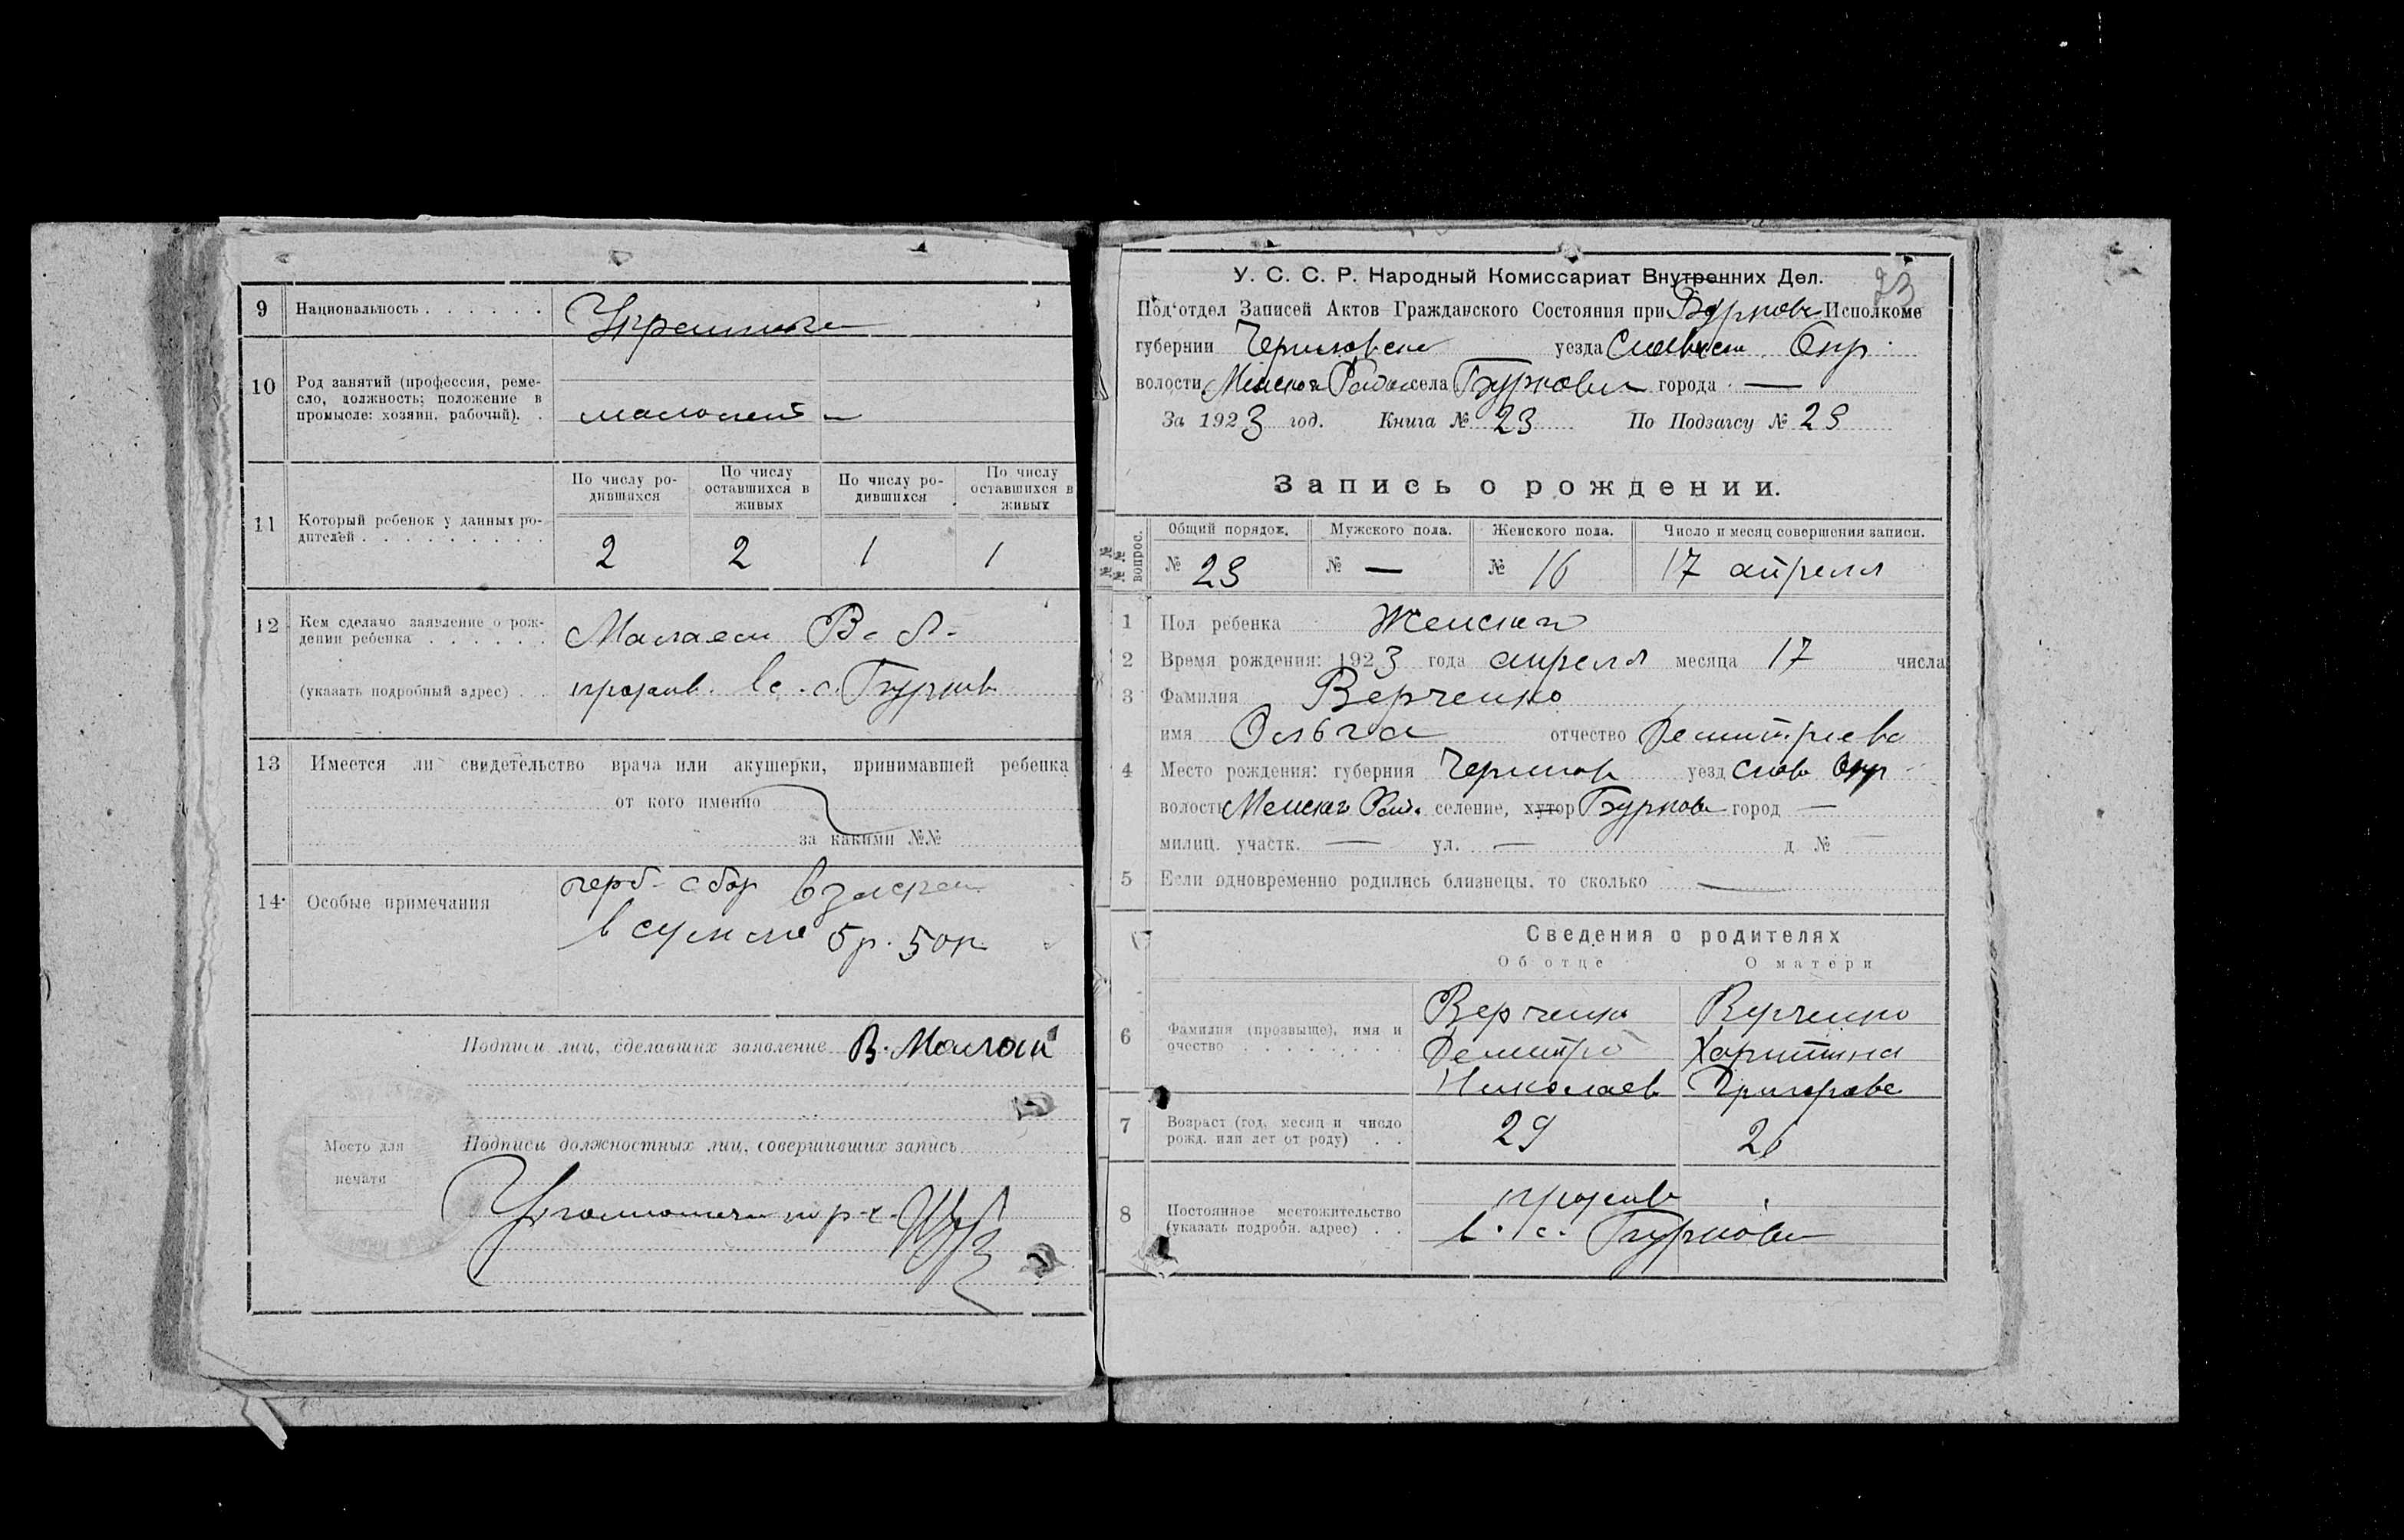 9 Национальность
Украинцы
10 Род занятий (профессия, реме-
сло, должность; положение в
промысле: хозяин, рабочий).
11 Который ребенок у данных ро-
дителей
По числу ро-
дившихся
По числу
оставшихся в
живых
По числу ро-
дившихся
По числу
оставшихся в
живых
2 2 1 1
12 Кем сделано заявление о рож-
дении ребенка
(указать подробный адрес)
прожив. в с. Бурков
13 Имеется ли свидетельство врача или акушерки, принимавшей ребенка
от кого именно
за какими №№
14 Особые примечания
герб. сбор взыскан
в сумме 5р. 50к
Подписи лиц, сделавших заявление
Место для
печати
Подписи должностных лиц, совершивших запись
23
У. С. С. Р. Народный Комиссариат Внутренних Дел.
Под‘отдел Записей Актов Гражданского Состояния при Бурков Исполкоме
губернии Черниговской уезда Окр.
волости Менской села Бурковки города —
За 1923 год. Книга № 23 По Подзагсу № 23
Запись о рождении.
№№ №№ вопрос.
Общий порядок. Мужского пола. Женского пола. Число и месяц совершения записи.
№ 23 № — № 16 17 апреля
1 Пол ребенка Женский
2 Время рождения: 1923 года апреля месяца 17 числа
3 Фамилия Верченко
имя Ольга отчество Демитриева
4 Место рождения: губерния Чернигов уезд Снов Окр
волость Менская селение, хутор Бурковка город —
милиц. участк. — ул. — д № —
5 Если одновременно родились близнецы, то сколько —
Сведения о родителях
Об отце О матери
6 Фамилия (прозвыще), имя и
очество
Верченко Верченко
Демитрий Харитина
Николаев Григорова
7 Возраст (год, месяц и число
рожд. или лет от роду)
29 26
8 Постоянное местожительство
(указать подробн. адрес)
прожив
в. с. Бурковки